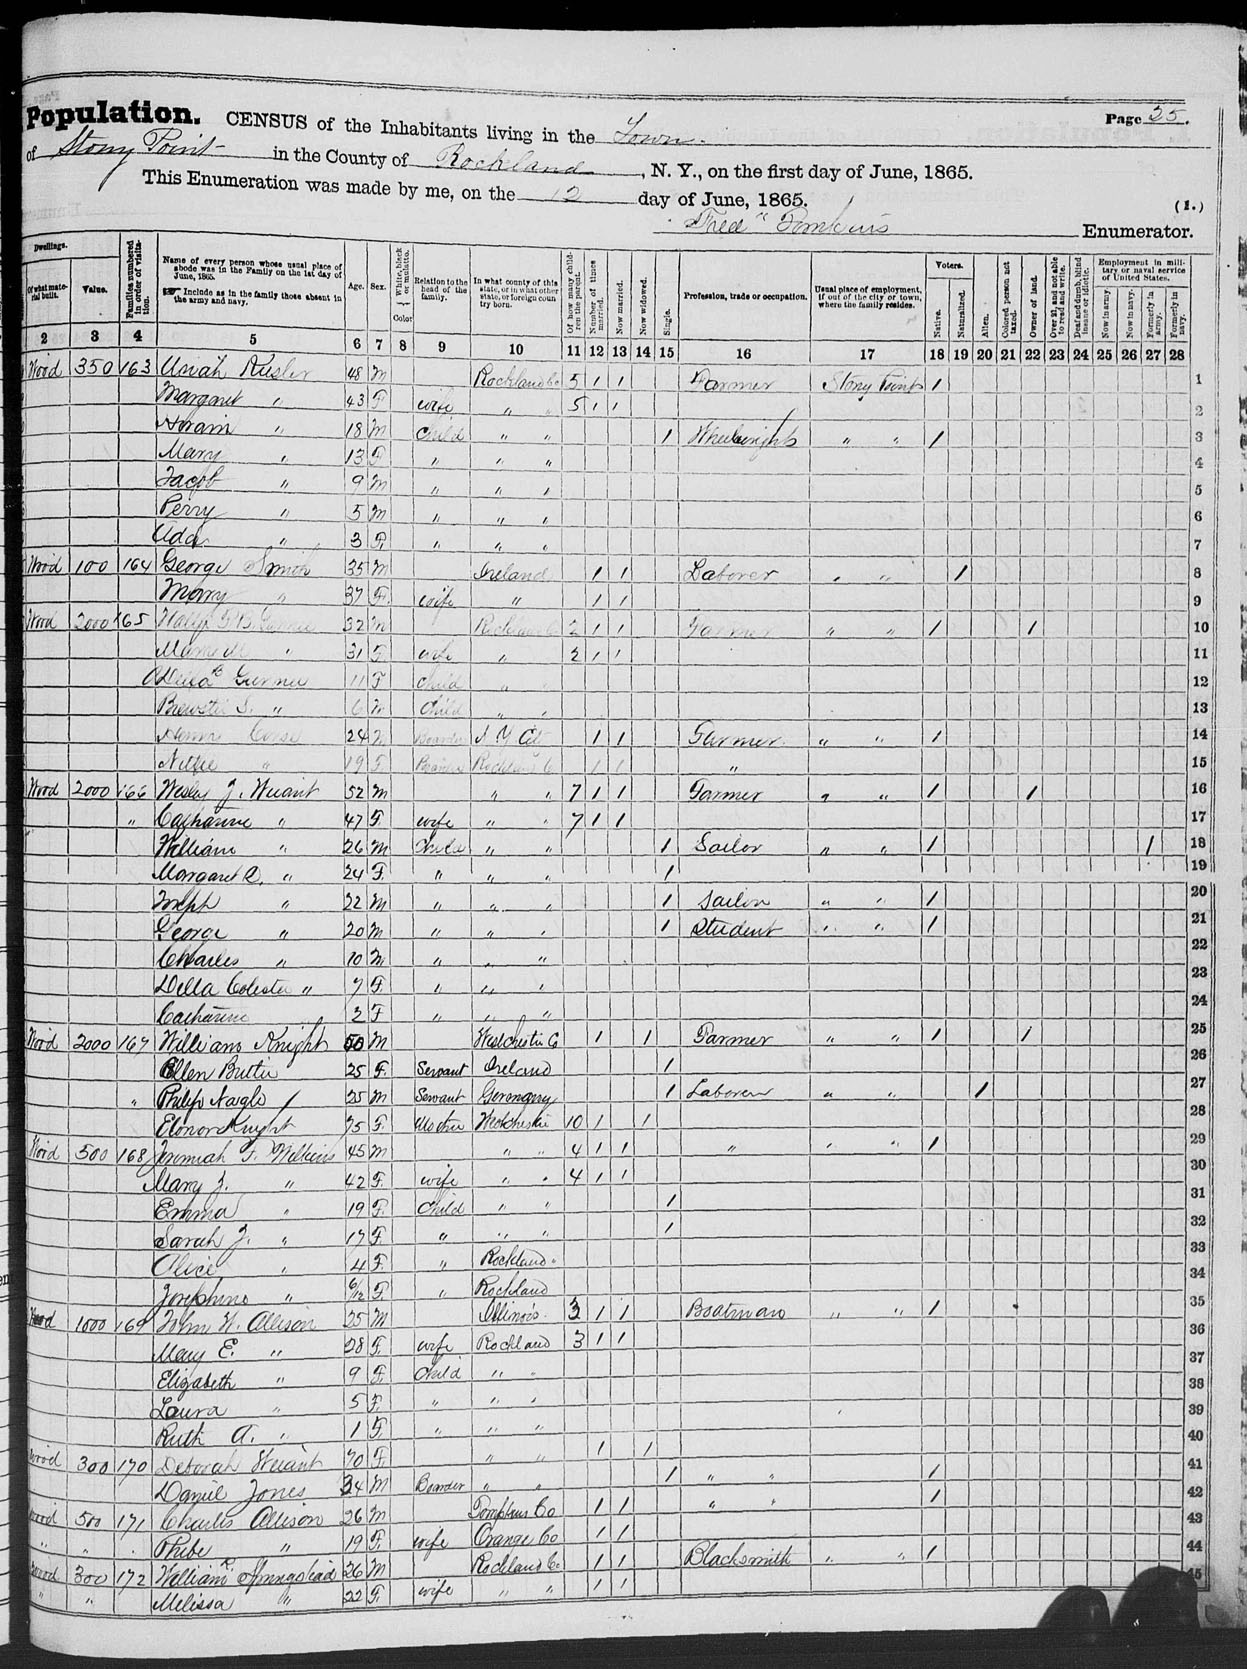 Population. CENSUS of the Inhabitants living in the Town Page 35.
of Stony Point in the County of Rockland, N. Y., on the first day of June, 1865.
This Enumeration was made by me, on the 12 day of June, 1865.
(1.)
Fred Tomkins Enumerator.
Dwellings. Of what material built. Value. Families numbered in order of visitation. Name of every person whose usual place of abode was in the Family on the 1st day of June, 1865. ☞ Include as in the family those absent in the army and navy. Age. Sex. White, black or mulatto. Color Relation to the head of the family. In what county of this state, or in what other state, or foreign country born. Of how many children the parent. Number of times married. Now married. Now widowed. Single. Profession, trade or occupation. Usual place of employment, if out of the city or town, where the family resides. Voters. Native. Naturalized. Alien. Colored person not taxed. Owner of land. Over 21, and not able to read and write. Deaf and dumb, blind insane or idiotic. Employment in military or naval service of United States. Now in army. Now in navy. Formerly in army. Formerly in navy.
2 3 4 5 6 7 8 9 10 11 12 13 14 15 16 17 18 19 20 21 22 23 24 25 26 27 28
Wood 350 163 Uriah 48 M Rockland Co 5 1 1 Farmer Stony Point 1 1
Margaret " 43 F. wife " " 5 1 1 2
Hiram " 18 M Child " " 1 Wheelwright " " 1 3
Mary " 13 F " " " 4
Jacob " 9 M " " " 5
Perry " 5 M " " " 6
Ada " 3 F. " " " 7
Wood 100 164 George Smith 35 M Ireland 1 1 Laborer " " 1 8
Mary " 37 F. wife " 1 1 9
Wood 2000 165 32 M Rockland Co 2 1 1 Farmer " " 1 1 10
Mary M " 31 F. wife " 2 1 1 11
Gurnee 11 F Child " " 12
Brewster S. " 6 M Child " " 13
24 M Boarder N Y Cit 1 1 Farmer " " 1 14
Nellie " 19 F. Boarder Rockland C 1 1 " 15
Wood 2000 166 Wesley J. Weiant 52 M " " 7 1 1 Farmer " " 1 1 16
" Catharine " 47 F. wife " " 7 1 1 17
William " 26 M Child " " 1 Sailor " " 1 1 18
Margaret A. " 24 F. " " " 1 19
Joseph " 22 M " " " 1 Sailor " " 1 20
George " 20 M " " " 1 Student " " 1 21
Charles " 10 M " " " 22
Della Celester " 7 F. " " " 23
Catharine 2 F " " " 24
Wood 2000 167 William Knight 50 M Westchester C 1 1 Farmer " " 1 1 25
Ellen Butler 25 F. Servant Ireland 1 26
" Philip Nagle 25 M Servant Germany 1 Laborer " " 1 27
Elonor Knight 75 F. Mother Westchester 10 1 1 28
Wood 500 168 Jeremiah F. Wilkins 45 M " " 4 1 1 " " " 1 29
Mary J. " 42 F. wife " " 4 1 1 30
Emma " 19 F. Child " " 1 31
Sarah J. " 17 F. " " " 1 32
Alice " 4 F. " Rockland 33
Josephine " 6/12 F. " Rockland 34
Wood 1000 169 John W. Allison 25 M Illinois 3 1 1 Boatman " " 1 35
Mary E. " 28 F. wife Rockland 3 1 1 36
Elizabeth " 9 F. Child " " 37
Laura " 5 F. " " " 38
Ruth A. " 1 F. " " " 39
Wood 300 170 Deborah Weiant 70 F. " " 1 1 40
Daniel Jones 34 M Boarder " " 1 " " 1 41
Wood 500 171 Charles Allison 26 M Tompkins Co 1 1 " " 1 42
" " " Phebe " 19 F. wife Orange Co 1 1 43
Wood 300 172 William R Springstead 26 M Rockland Co 1 1 Blacksmith " " 1 44
" " Melissa " 22 F. wife " " 1 1 45